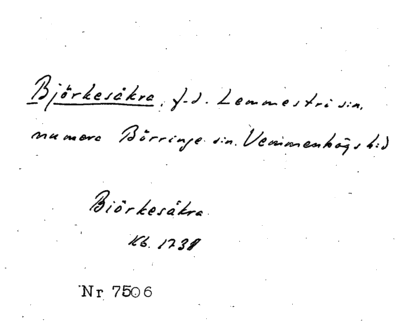 Björkesåkra, f.d. Lemmeströ sn,
numera Börringe sn. Vemmenhögs hd
Biörkesåkra
Kb. 1738
Nr 7506